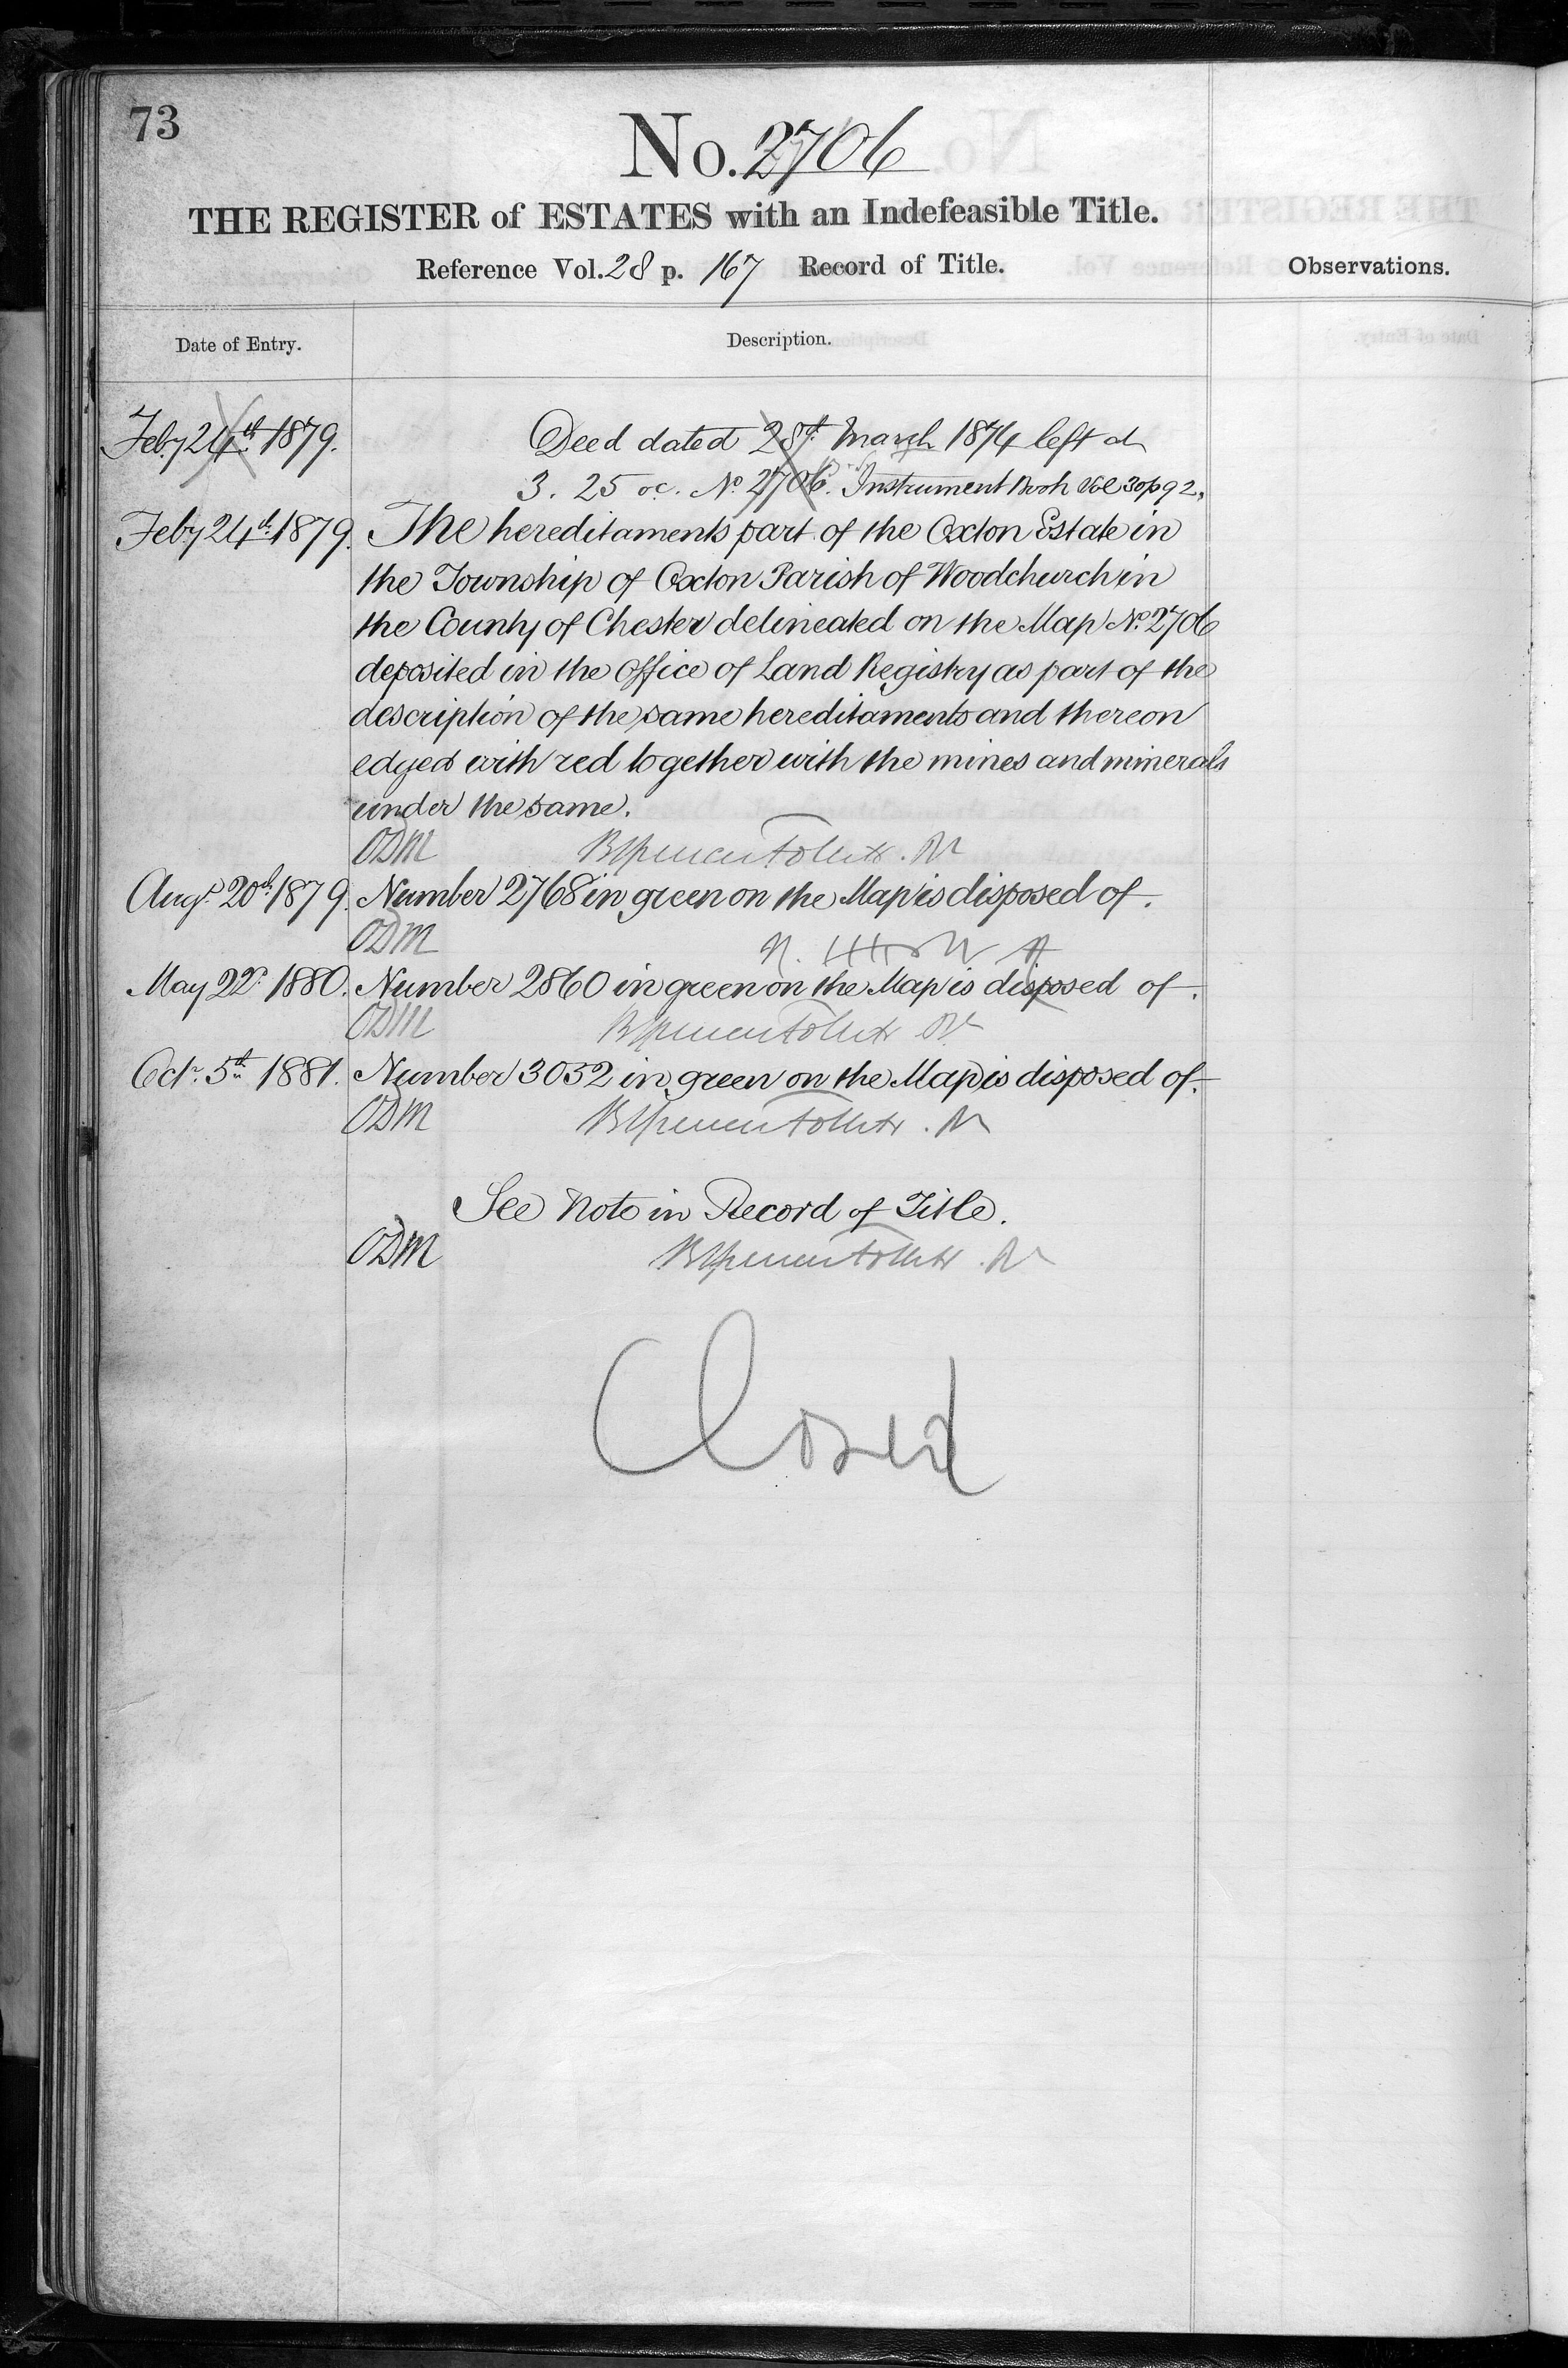 73
No. 2706
THE REGISTER of ESTATES with an Indefeasible Title.
Reference Vol. 28 p. 167 Record of Title.
Observations.
Date of Entry.
Description.
Feby 24th 1879. Deed dated 28th March 1874 left at
3. 25 oc. No. 2706. Instrument Book Vol 30 p 92.
Feby 24th 1879. The hereditaments part of the Oxton Estate in
the Township of Oxton Parish of Woodchurch in
the County of Chester delineated on the Map No. 2706
deposited in the Office of Land Registry as part of the
description of the same hereditaments and thereon
edged with red together with the mines and minerals
under the same.
ODM
Augt. 20th 1879. Number 2768 in green on the Map is disposed of.
ODM
May 22d. 1880. Number 2860 in green on the Map is disposed of.
ODM
Octr. 5th 1881. Number 3052 in green on the Map is disposed of.
ODM
See Note in Record of Title.
ODM
Closed